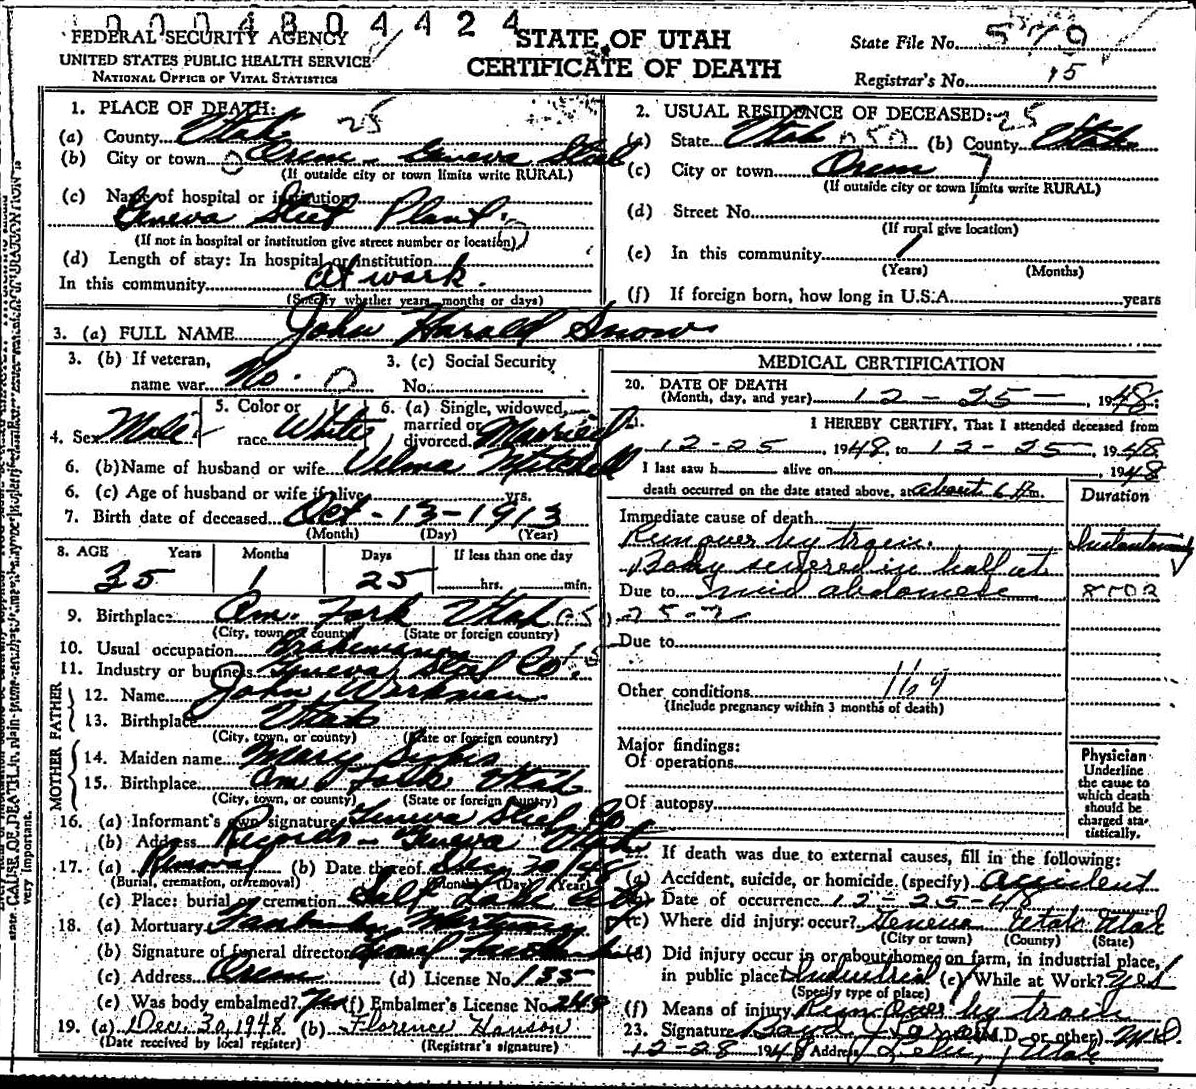 0000480 4424
FEDERAL SECURITY AGENCY
UNITED STATES PUBLIC HEALTH SERVICE
NATIONAL OFFICE OF VITAL STATISTICS
STATE OF UTAH
CERTIFICATE OF DEATH
State File No.
Registrar's No. 15
1. PLACE OF DEATH: 25
(a) County Utah
(b) City or town Orem - Geneva Steel
(If outside city or town limits write RURAL)
(c) Name of hospital or institution
Geneva Steel Plant
(If not in hospital or institution give street number or location)
(d) Length of stay: In hospital or institution
In this community at work.
(Specify whether years, months or days)
2. USUAL RESIDENCE OF DECEASED: 25
(a) State Utah (b) County Utah
(c) City or town Orem
(If outside city or town limits write RURAL)
(d) Street No.
(If rural give location)
(e) In this community 1
(Years) (Months)
(f) If foreign born, how long in U.S.A. years
3. (a) FULL NAME John Harold Snow
3. (b) If veteran,
name war No.
3. (c) Social Security
No.
4. Sex Male
5. Color or
race White
6. (a) Single, widowed,
married or
divorced. Married
6. (b) Name of husband or wife Velma Mitchell
6. (c) Age of husband or wife if alive yrs.
7. Birth date of deceased Oct - 13 - 1913
(Month) (Day) (Year)
8. AGE Years Months Days If less than one day
35 1 25 hrs. min.
9. Birthplace Am. Fork Utah
(City, town or county) (State or foreign country)
10. Usual occupation Brakeman
11. Industry or business Geneva Steel Co.
FATHER
12. Name John Workman
13. Birthplace Utah
(City, town, or county) (State or foreign country)
MOTHER
14. Maiden name Mary
15. Birthplace Am Fork Utah
(City, town, or county) (State or foreign country)
16. (a) Informant's own signature Geneva Steel Co
(b) Address Records - Geneva Utah
17. (a) Removal (b) Date thereof Dec
(Burial, cremation, or removal) (Month) (Day) (Year)
(c) Place: burial or cremation Salt Lake City
18. (a) Mortuary Mortuary
(b) Signature of funeral director
(c) Address Orem (d) License No. 135
(e) Was body embalmed? (f) Embalmer's License No. 249
19. (a) Dec. 30, 1948 (b) Florence Hanson
(Date received by local register) (Registrar's signature)
MEDICAL CERTIFICATION
20. DATE OF DEATH
(Month, day, and year) 12 - 25 - , 1948
21. I HEREBY CERTIFY, That I attended deceased from
12-25 , 1948, to 12-25 , 1948
I last saw h alive on , 1948
death occurred on the date stated above, at about 6 Pm. Duration
Immediate cause of death
Run over by train. Instantaneously
Body severed in half at
Due to mid abdomen
25-7
Due to
Other conditions 169
(Include pregnancy within 3 months of death)
Major findings:
Of operations
Of autopsy
Physician
Underline
the cause to
which death
should be
charged sta-
tistically.
If death was due to external causes, fill in the following:
(a) Accident, suicide, or homicide (specify) accident
(b) Date of occurrence 12-25-48
(c) Where did injury occur? Geneva Utah Utah
(City or town) (County) (State)
(d) Did injury occur in or about home, on farm, in industrial place,
in public place? Industrial (e) While at Work? yes
(Specify type of place)
(f) Means of injury Run over by train
23. Signature Boyd (M.D. or other) M.D.
12-28 1948 Address Lehi, Utah
state CAUSE OF DEATH in plain terms
very important.